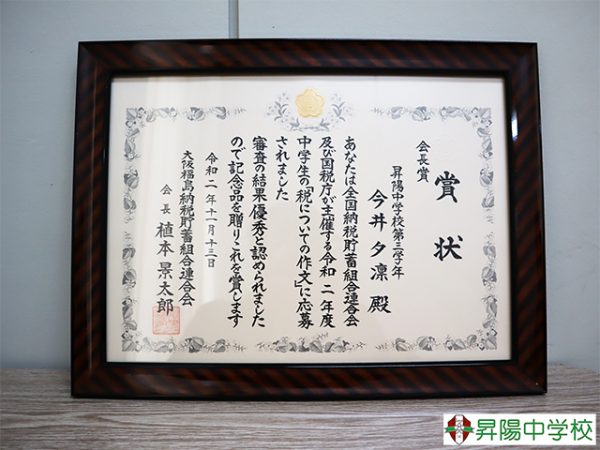 賞状
会長賞
昇陽中学校第三学年
今井夕凛 殿
あなたは全国納税貯蓄組合連合会
及び国税庁が主催する令和二年度
中学生の「税についての作文」に応募
されました
審査の結果優秀と認められました
ので記念品を贈りこれを賞します
令和二年十一月十三日
大阪福島納税貯蓄組合連合会
会長 植本景太郎
昇陽中学校